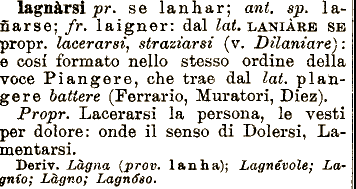 lagnàrsi pr. se lanhar; ant. sp. la-
ñarse; fr. laigner: dal lat. LANIÀRE SE
propr. lacerarsi, straziarsi (v. Dilaniare):
e così formato nello stesso ordine della
voce Piangere, che trae dal lat. plan-
gere battere (Ferrario, Muratori, Diez).
Propr. Lacerarsi la persona, le vesti
per dolore: onde il senso di Dolersi, La-
mentarsi.
Deriv. Làgna (prov. lanha); Lagnévole; La-
gnío; Làgno; Lagnóso.